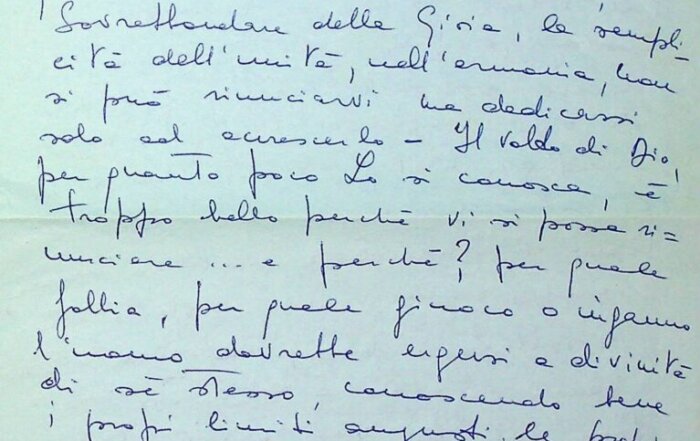 Sovrabbondare della Gioia, la sempli-
cità dell'unità, nell'armonia, non
si può rinunciarvi ma dedicarsi
solo ad accrescerlo - Il volto di Dio,
per quanto poco Lo si conosca, è
troppo bello perché vi si possa ri=
nunciare ... e perché? per quale
follia, per quale giuoco o inganno
l'uomo dovrebbe ergersi a divinità
di sé stesso, conoscendo bene
i propri limiti angusti, le